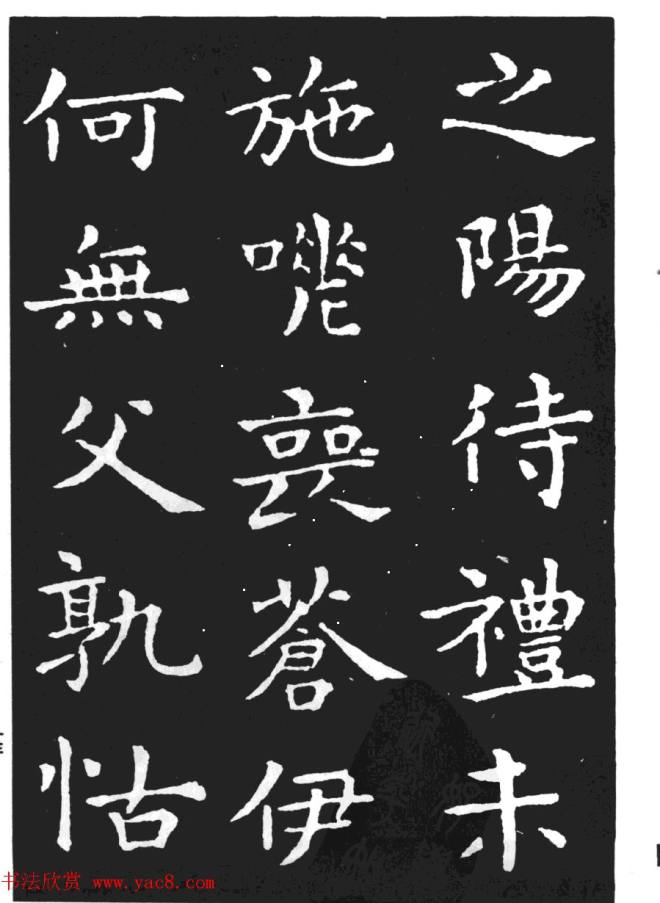 之陽待禮未
施喪蒼伊
何無父孰怙
书法欣赏 www.yac8.com